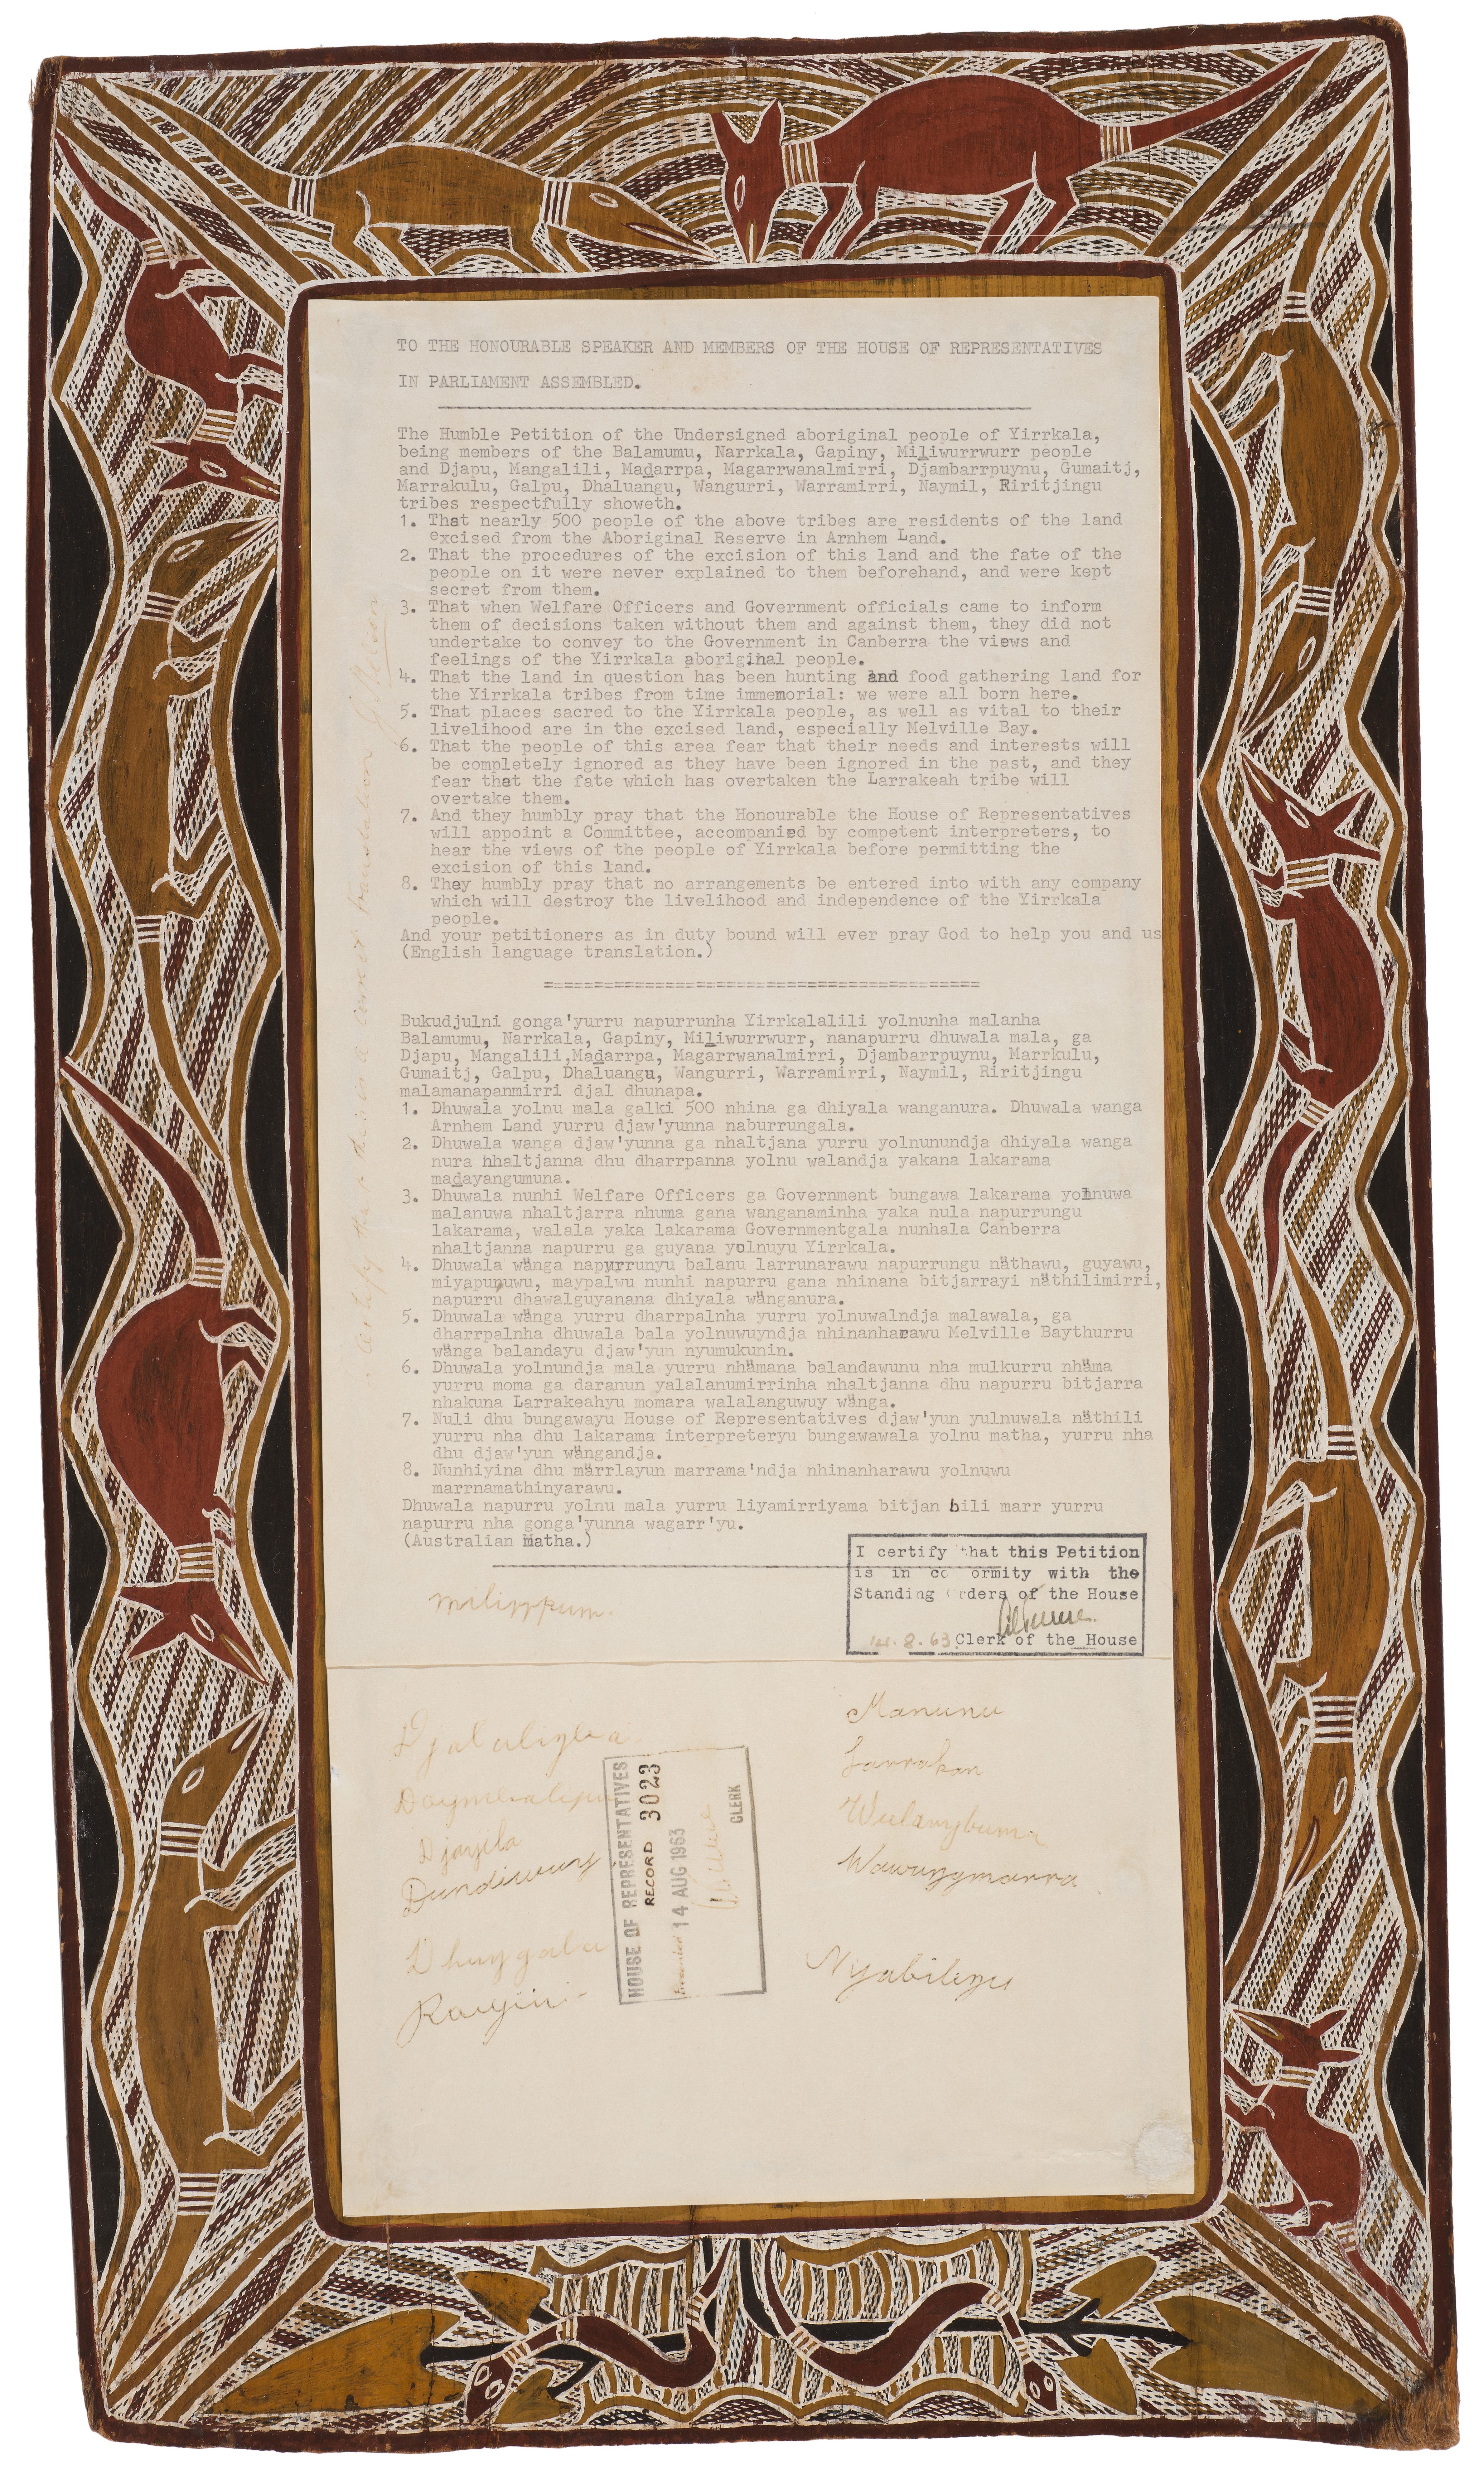 TO THE HONOURABLE SPEAKER AND MEMBERS OF THE HOUSE OF REPRESENTATIVES
IN PARLIAMENT ASSEMBLED.
The Humble Petition of the Undersigned aboriginal people of Yirrkala,
being members of the Balamumu, Narrkala, Gapiny, Miliwurrwurr people
and Djapu, Mangalili, Madarrpa, Magarrwanalmirri, Djambarrpuynu, Gumaitj,
Marrakulu, Galpu, Dhaluangu, Wangurri, Warramirri, Naymil, Riritjingu
tribes respectfully showeth.
1. That nearly 500 people of the above tribes are residents of the land
excised from the Aboriginal Reserve in Arnhem Land.
2. That the procedures of the excision of this land and the fate of the
people on it were never explained to them beforehand, and were kept
secret from them.
3. That when Welfare Officers and Government officials came to inform
them of decisions taken without them and against them, they did not
undertake to convey to the Government in Canberra the views and
feelings of the Yirrkala aboriginal people.
4. That the land in question has been hunting and food gathering land for
the Yirrkala tribes from time immemorial: we were all born here.
5. That places sacred to the Yirrkala people, as well as vital to their
livelihood are in the excised land, especially Melville Bay.
6. That the people of this area fear that their needs and interests will
be completely ignored as they have been ignored in the past, and they
fear that the fate which has overtaken the Larrakeah tribe will
overtake them.
7. And they humbly pray that the Honourable the House of Representatives
will appoint a Committee, accompanied by competent interpreters, to
hear the views of the people of Yirrkala before permitting the
excision of this land.
8. They humbly pray that no arrangements be entered into with any company
which will destroy the livelihood and independence of the Yirrkala
people.
And your petitioners as in duty bound will ever pray God to help you and us
(English language translation.)
Bukudjulni gonga'yurru napurrunha Yirrkalalili yolnunha malanha
Balamumu, Narrkala, Gapiny, Miliwurrwurr, nanapurru dhuwala mala, ga
Djapu, Mangalili, Madarrpa, Magarrwanalmirri, Djambarrpuynu, Marrkulu,
Gumaitj, Galpu, Dhaluangu, Wangurri, Warramirri, Naymil, Riritjingu
malamanapanmirri djal dhunapa.
1. Dhuwala yolnu mala galki 500 nhina ga dhiyala wanganura. Dhuwala wanga
Arnhem Land yurru djaw'yunna naburrungala.
2. Dhuwala wanga djaw'yunna ga nhaltjana yurru yolnunundja dhiyala wanga
nura nhaltjanna dhu dharrpanna yolnu walandja yakana lakarama
madayangumuna.
3. Dhuwala nunhi Welfare Officers ga Government bungawa lakarama yolnuwa
malanuwa nhaltjarra nhuma gana wanganaminha yaka nula napurrungu
lakarama, walala yaka lakarama Governmentgala nunhala Canberra
nhaltjanna napurru ga guyana yolnuyu Yirrkala.
4. Dhuwala wänga napurrunyu balanu larrunarawu napurrungu näthawu, guyawu,
miyapunuwu, maypalwu nunhi napurru gana nhinana bitjarrayi näthilimirri,
napurru dhawalguyanana dhiyala wänganura.
5. Dhuwala wänga yurru dharrpalnha yurru yolnuwalndja malawala, ga
dharrpalnha dhuwala bala yolnuwuyndja nhinanharawu Melville Baythurru
wänga balandayu djaw'yun nyumukunin.
6. Dhuwala yolnundja mala yurru nhämana balandawunu nha mulkurru nhäma
yurru moma ga daranun yalalanumirrinha nhaltjanna dhu napurru bitjarra
nhakuna Larrakeahyu momara walalanguwuy wänga.
7. Nuli dhu bungawayu House of Representatives djaw'yun yulnuwala näthili
yurru nha dhu lakarama interpreteryu bungawawala yolnu matha, yurru nha
dhu djaw'yun wängandja.
8. Nunhiyina dhu märrlayun marrama'ndja nhinanharawu yolnuwu
marrnamathinyarawu.
Dhuwala napurru yolnu mala yurru liyamirriyama bitjan bili marr yurru
napurru nha gonga'yunna wagarr'yu.
(Australian matha.)
I certify that this Petition
is in co ormity with the
Standing Orders of the House
14.8.63 Clerk of the House
milirrpum.
Djalalingba
Daymbalipu
Djayila
Dundiwuy
Dhuygala
Raiyin
Manunu
Larrakan
Wulanybuma
Wawunymarra
Nyabilingu
HOUSE OF REPRESENTATIVES
RECORD 3023
Presented 14 AUG 1963
CLERK